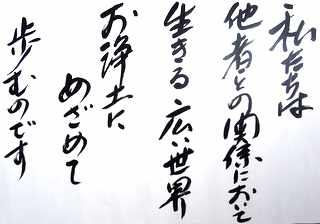 私たちは
他者との関係において
生きる 広い世界
お浄土に
めざめて
歩むのです